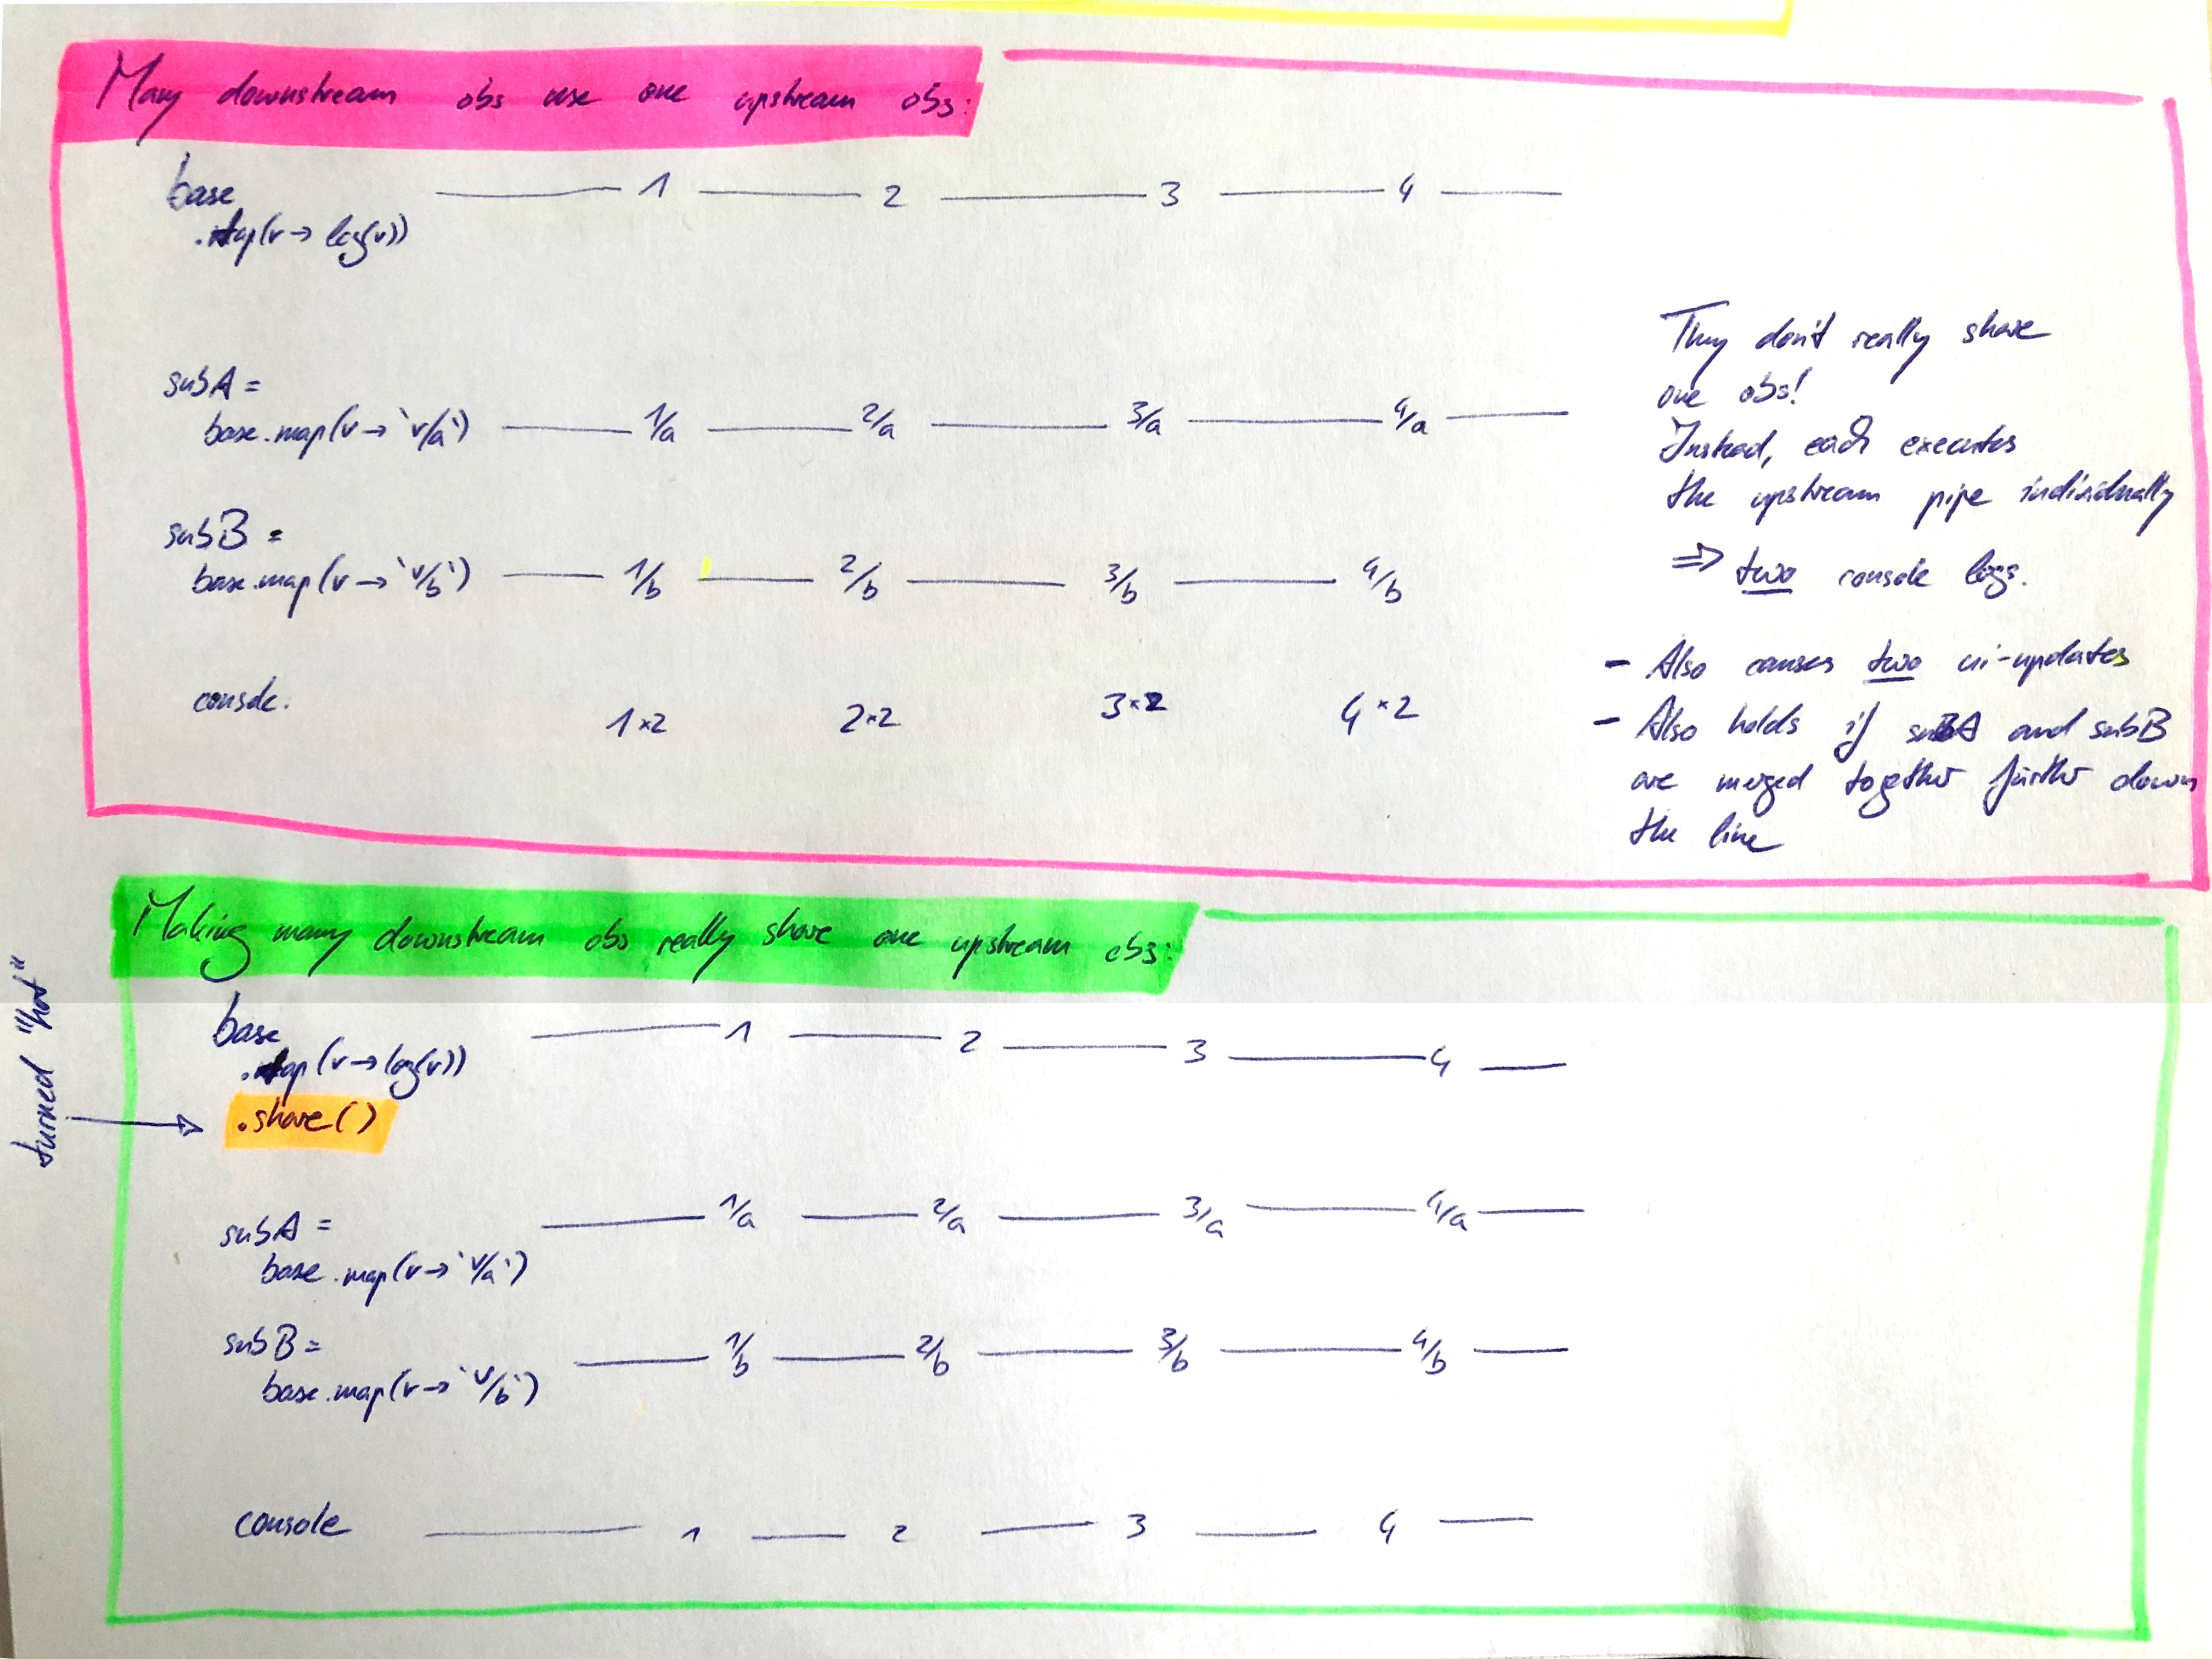 Many downstream obs use one upstream obs:
base — 1 — 2 — 3 — 4 —
.tap(v → log(v))
subA =
base.map(v → `v/a`) — 1/a — 2/a — 3/a — 4/a —
subB =
base.map(v → `v/b`) — 1/b — 2/b — 3/b — 4/b
console. 1×2 2×2 3×2 4×2
They don't really share
one obs!
Instead, each executes
the upstream pipe individually
⇒ two console logs.
- Also causes two ui-updates
- Also holds if subA and subB
are merged together further down
the line
Making many downstream obs really share one upstream obs:
turned "hot" →
base — 1 — 2 — 3 — 4 —
.tap(v → log(v))
.share()
subA = — 1/a — 2/a — 3/a — 4/a —
base.map(v → `v/a`)
subB = — 1/b — 2/b — 3/b — 4/b —
base.map(v → `v/b`)
console — 1 — 2 — 3 — 4 —